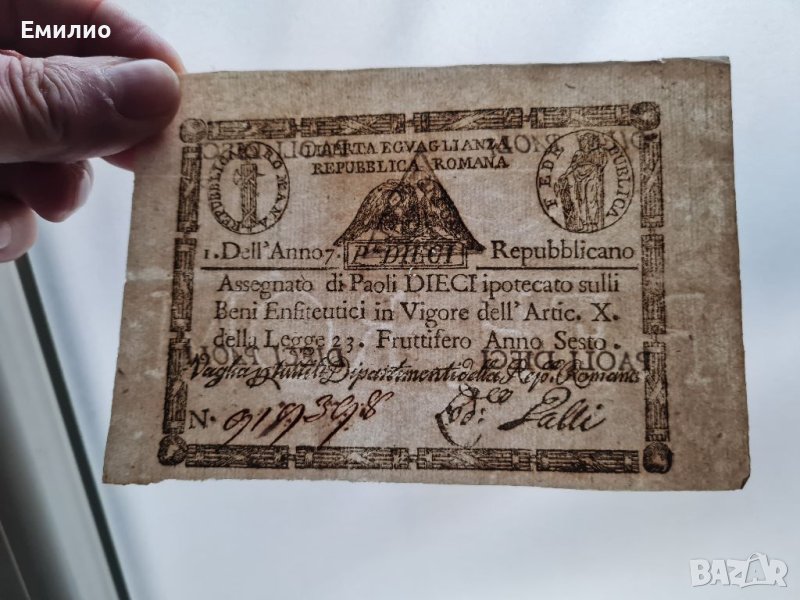 Емилио
LIBERTA EGVAGLIANZA
REPUBBLICA ROMANA
REPUBBLICA ROMANA
FEDE PUBLICA
1. Dell'Anno 7. Pli. DIECI Repubblicano
Assegnato di Paoli DIECI ipotecato sulli
Beni Enfiteutici in Vigore dell'Artic. X.
della Legge 23. Fruttifero Anno Sesto.
PAOLI DIECI
DIECI PAOLI
Vaglia p tutti li Dipartimenti della Repb. Romana
N. 
BAZAR